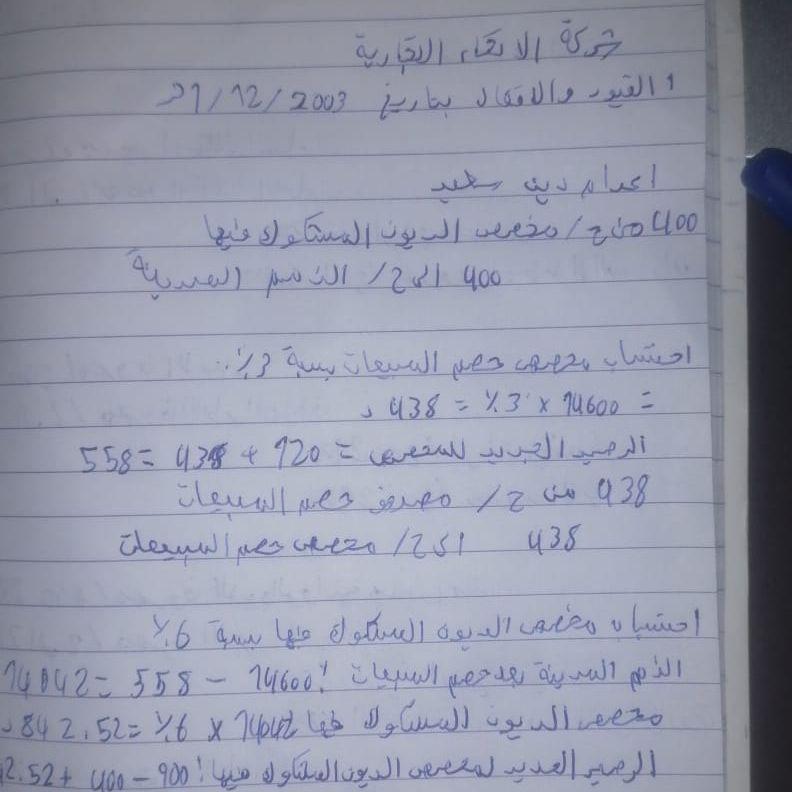 شركة الاتحاد التجارية
1 القيود والاقفال بتاريخ 31/12/2003
اعدام دين سعيد
400 من ح/ مخصص الديون المشكوك فيها
400 الى ح/ الذمم المدينة
احتساب مخصص خصم المبيعات بنسبة 3٪
= 14600 × 3٪ = 438 د
الرصيد الجديد للمخصص = 120 + 438 = 558
438 من ح/ مصروف خصم المبيعات
438 الى ح/ مخصص خصم المبيعات
احتساب مخصص الديون المشكوك فيها بنسبة 6٪
الذمم المدينة بعد خصم المبيعات: 14600 – 558 = 14042
مخصص الديون المشكوك فيها 14042 × 6٪ = 842.52 د
الرصيد الجديد لمخصص الديون المشكوك فيها: 900 – 400 + 2.52